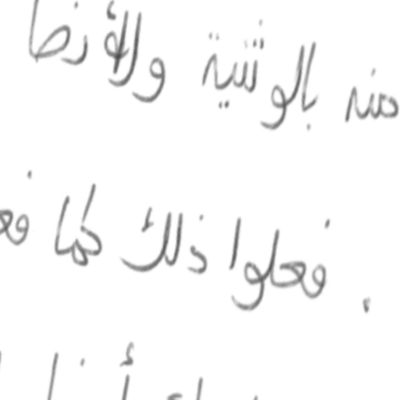 منه بالوثنية وللأرضا
. فعلوا ذلك كما فع